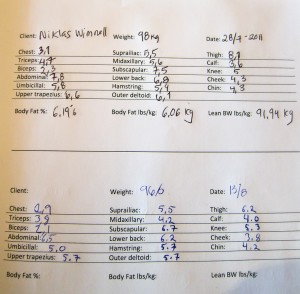 Client: Niklas Winnell Weight: 98kg Date: 28/7-2011
Chest: 3,1 Suprailiac: 5,5 Thigh: 8,1
Triceps: 4,7 Midaxillary: 5,6 Calf: 3,6
Biceps: 2,3 Subscapular: 7,5 Knee: 5
Abdominal: 7,8 Lower back: 6,9 Cheek: 4,3
Umbilical: 5,8 Hamstring: 5,9 Chin: 4,3
Upper trapezius: 6,6 Outer deltoid: 6,1
Body Fat %: 6,19% Body Fat lbs/kg: 6,06 kg Lean BW lbs/kg: 91,94 kg
Client: Weight: Date: 15/8
Chest: Suprailiac: 5,5 Thigh: 6.2
Triceps: 3,9 Midaxillary: 4,2 Calf: 4.0
Biceps: Subscapular: 6.7 Knee: 5.3
Abdominal: 6,5 Lower back: 6.2 Cheek: 3.8
Umbilical: 5.0 Hamstring: 5.7 Chin: 4.2
Upper trapezius: 5.7 Outer deltoid: 5.7
Body Fat %: Body Fat lbs/kg: Lean BW lbs/kg: